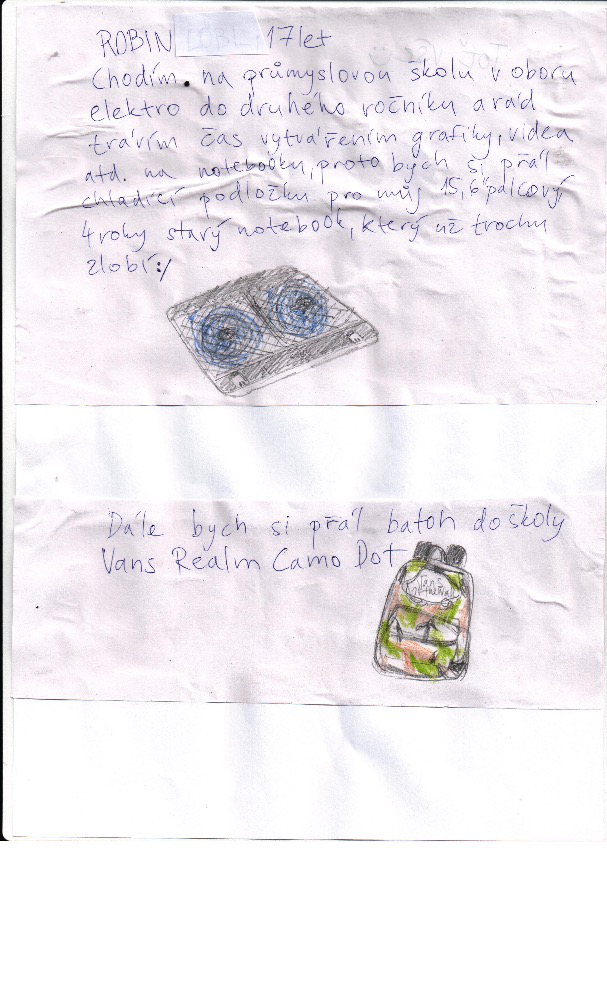 ROBIN 17let
Chodím na průmyslovou školu v oboru
elektro do druhého ročníku a rád
trávím čas vytvářením grafiky, videa
atd. na notebooku, proto bych si přál
chladící podložku pro můj 15,6" palcový
4 roky starý notebook, který už trochu
zlobí :/
Dále bych si přál batoh do školy
Vans Realm Camo Dot
Vans